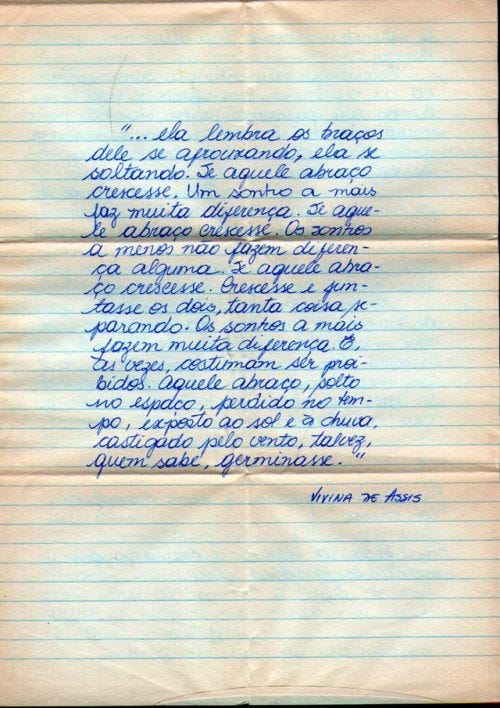 "... ela lembra os braços
dele se afrouxando, ela se
soltando. Se aquele abraço
crescesse. Um sonho a mais
faz muita diferença. Se aque-
le abraço crescesse. Os sonhos
a menos não fazem diferen-
ça alguma. Se aquele abra-
ço crescesse. Crescesse e jun-
tasse os dois, tanta coisa se-
parando. Os sonhos a mais
fazem muita diferença. E,
às vezes, costumam ser proi-
bidos. Aquele abraço, solto
no espaço, perdido no tem-
po, exposto ao sol e à chuva,
castigado pelo vento, talvez,
quem sabe, germinasse."
VIVINA DE ASSIS